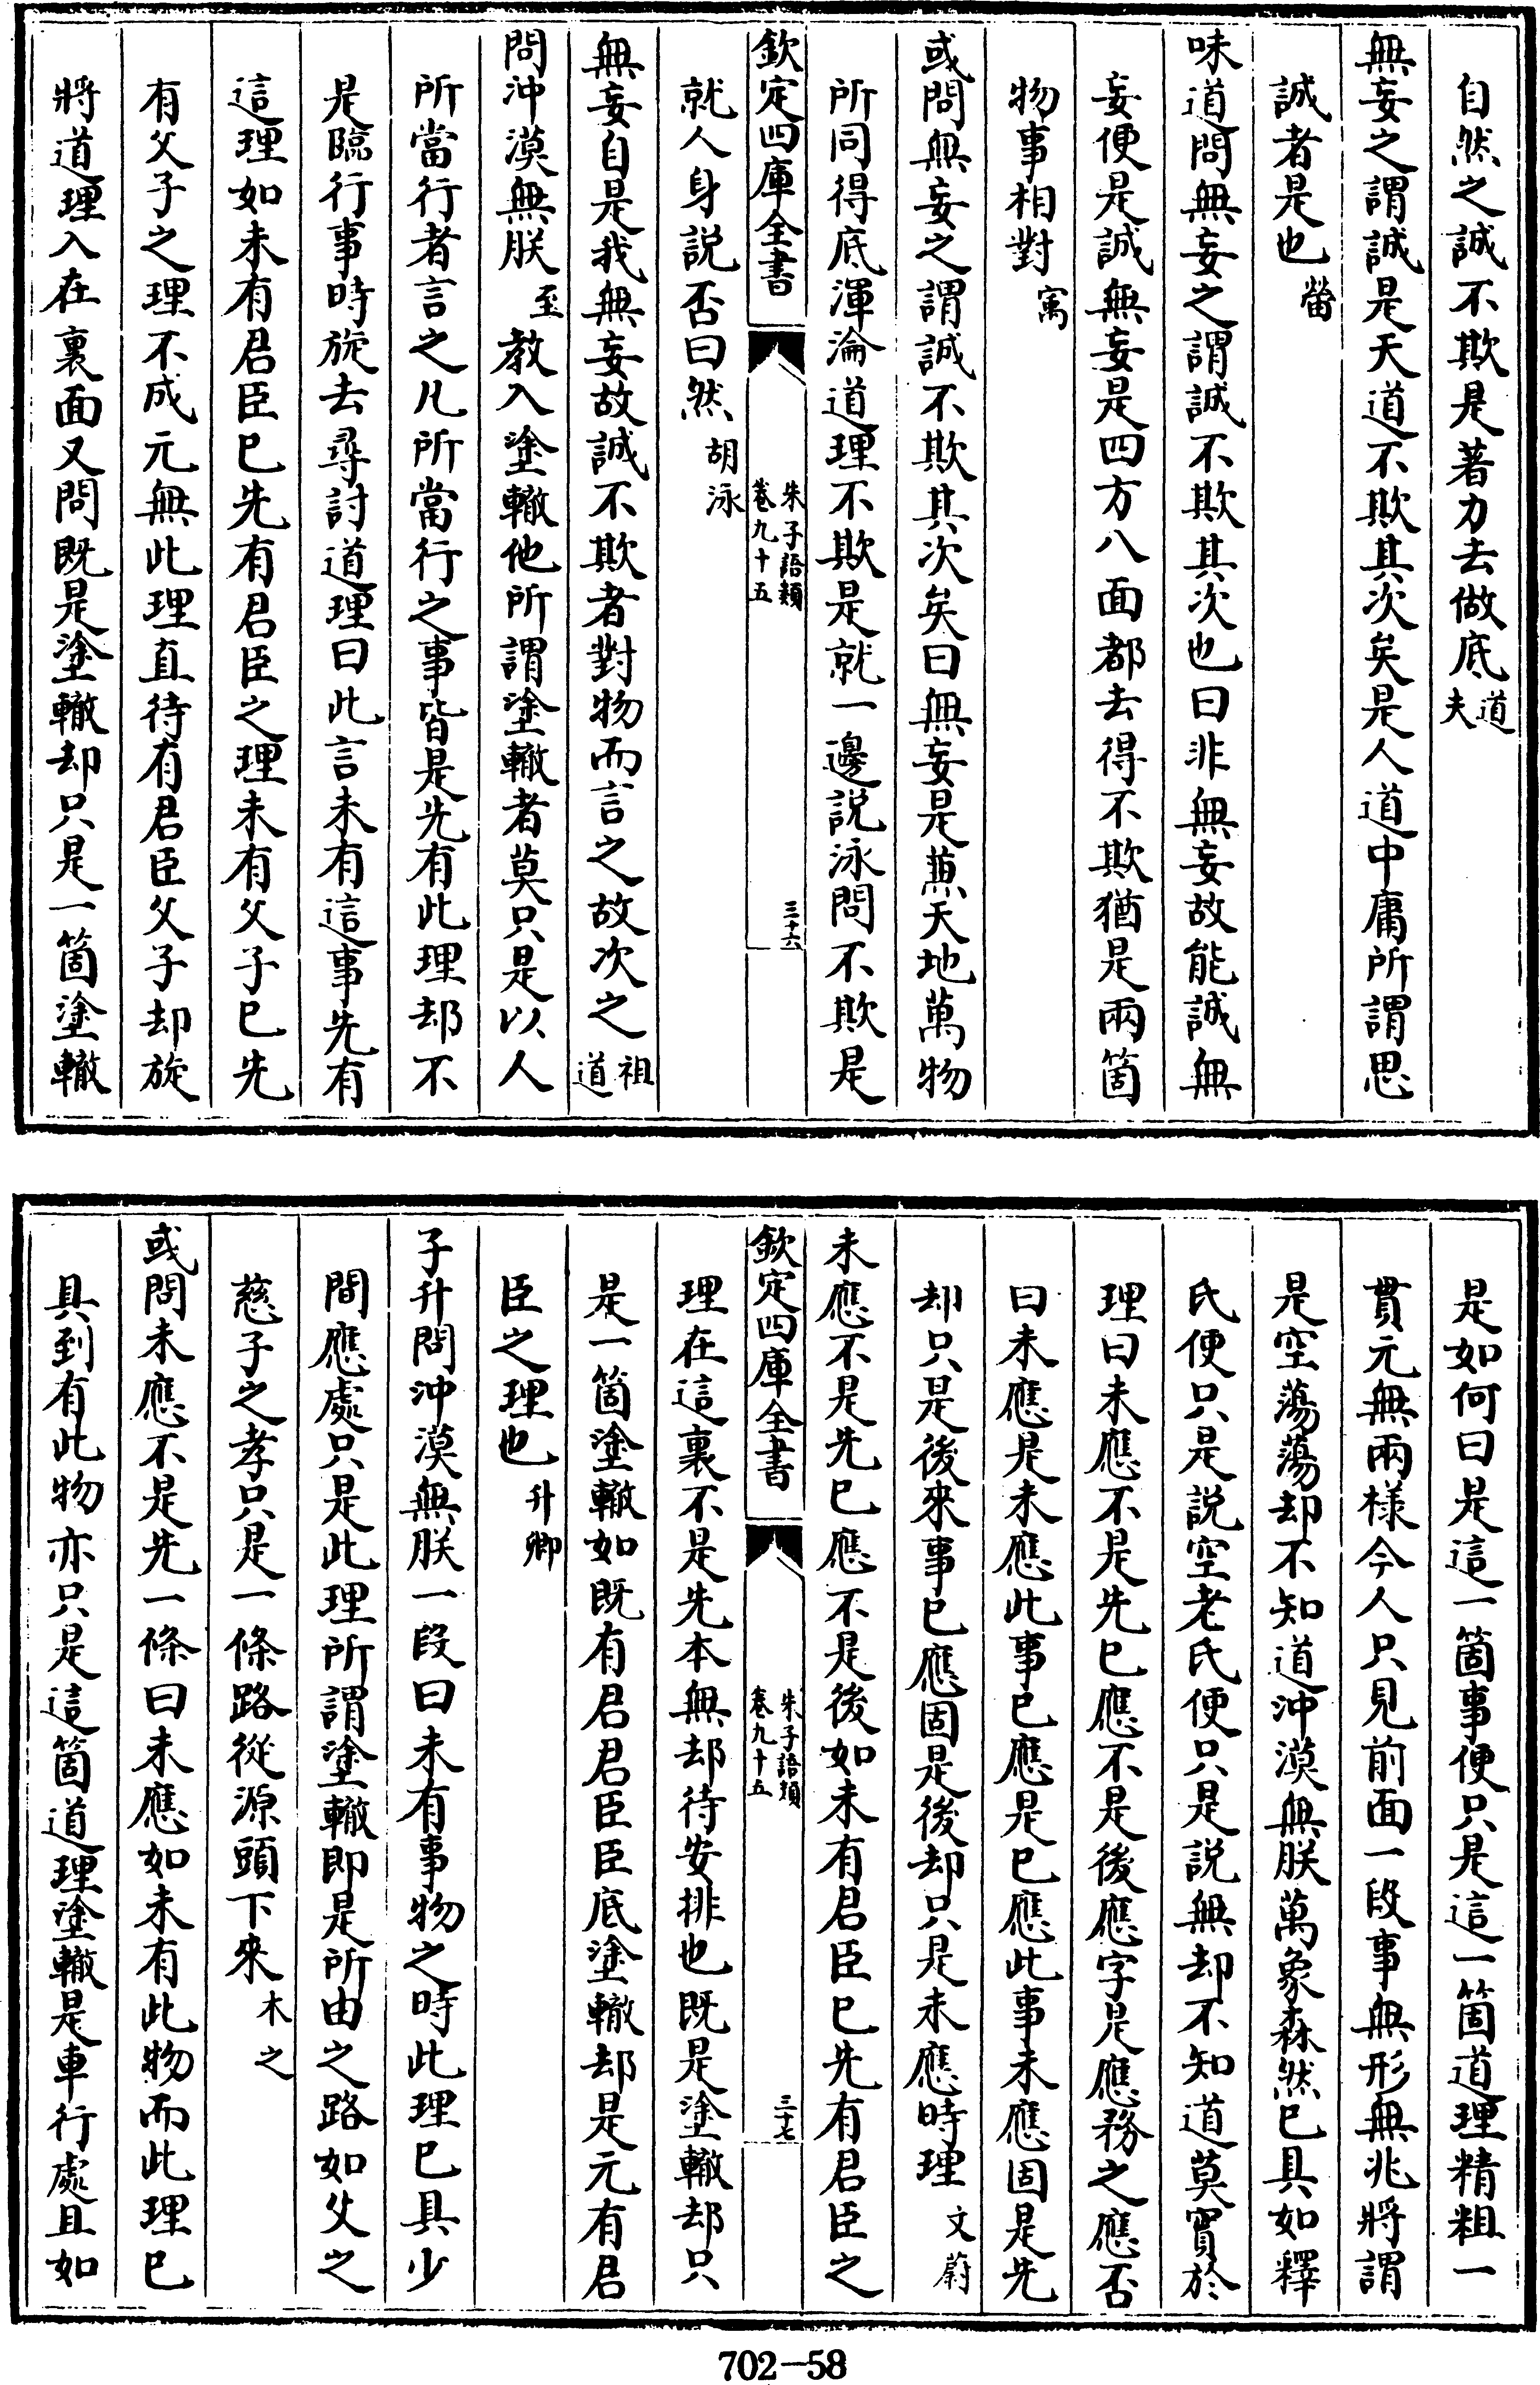 自然之誠不欺是著力去做底道夫
無妄之謂誠是天道不欺其次矣是人道中庸所謂思
誠者是也㽦
味道問無妄之謂誠不欺其次也曰非無妄故能誠無
妄便是誠無妄是四方八面都去得不欺猶是兩箇
物事相對㝢
或問無妄之謂誠不欺其次矣曰無妄是兼天地萬物
所同得底渾淪道理不欺是就一邊說泳問不欺是
欽定四庫全書 朱子語類卷九十五 三十六
就人身説否曰然胡泳
無妄自是我無妄故誠不欺者對物而言之故次之祖道
問沖漠無朕至教入塗轍他所謂塗轍者莫只是以人
所當行者言之凡所當行之事皆是先有此理却不
是臨行事時旋去尋討道理曰此言未有這事先有
這理如未有君臣已先有君臣之理未有父子已先
有父子之理不成元無此理直待有君臣父子却旋
將道理入在裏面又問既是塗轍却只是一箇塗轍
是如何曰是這一箇事便只是這一箇道理精粗一
貫元無兩様今人只見前面一段事無形無兆將謂
是空蕩蕩却不知道沖漠無朕萬象森然已具如釋
氏便只是説空老氏便只是説無却不知道莫實於
理曰未應不是先已應不是後應字是應務之應否
曰未應是未應此事已應是已應此事未應固是先
却只是後來事已應固是後却只是未應時理文蔚
未應不是先已應不是後如未有君臣已先有君臣之
欽定四庫全書 朱子語類卷九十五 三十七
理在這裏不是先本無却待安排也既是塗轍却只
是一箇塗轍如既有君君臣臣底塗轍却是元有君
臣之理也升卿
子升問沖漠無朕一段曰未有事物之時此理已具少
間應處只是此理所謂塗轍即是所由之路如父之
慈子之孝只是一條路從源頭下來木之
或問未應不是先一條曰未應如未有此物而此理已
具到有此物亦只是這箇道理塗轍是車行處且如
702—58